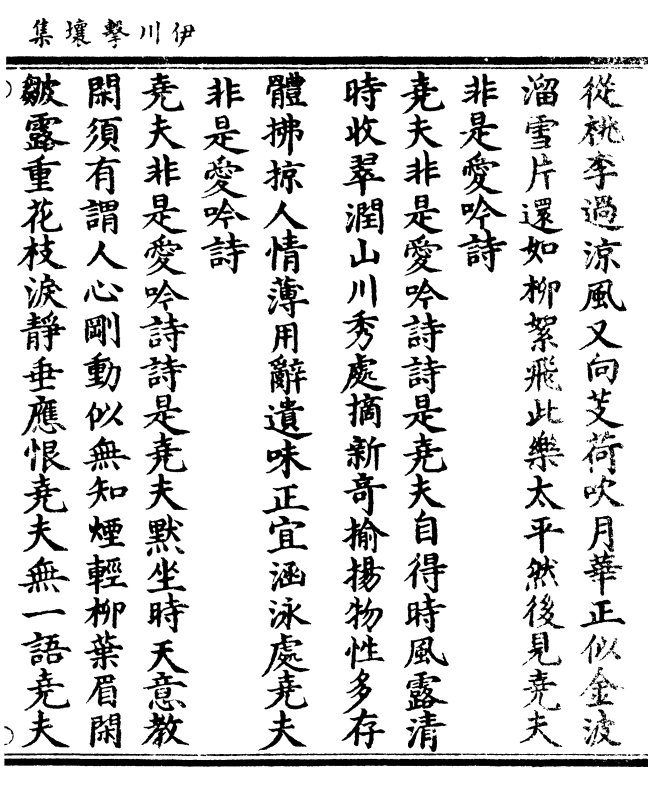 伊川擊壤集
從桃李過涼風又向芰荷吹月華正似金波
溜雪片還如柳絮飛此樂太平然後見堯夫
非是愛吟詩
堯夫非是愛吟詩詩是堯夫自得時風露清
時收翠潤山川秀處摘新奇揄揚物性多存
體拂掠人情薄用辭遺味正宜涵泳處堯夫
非是愛吟詩
堯夫非是愛吟詩詩是堯夫默坐時天意教
閑須有謂人心剛動似無知煙輕柳葉眉閑
皺露重花枝淚靜垂應恨堯夫無一語堯夫